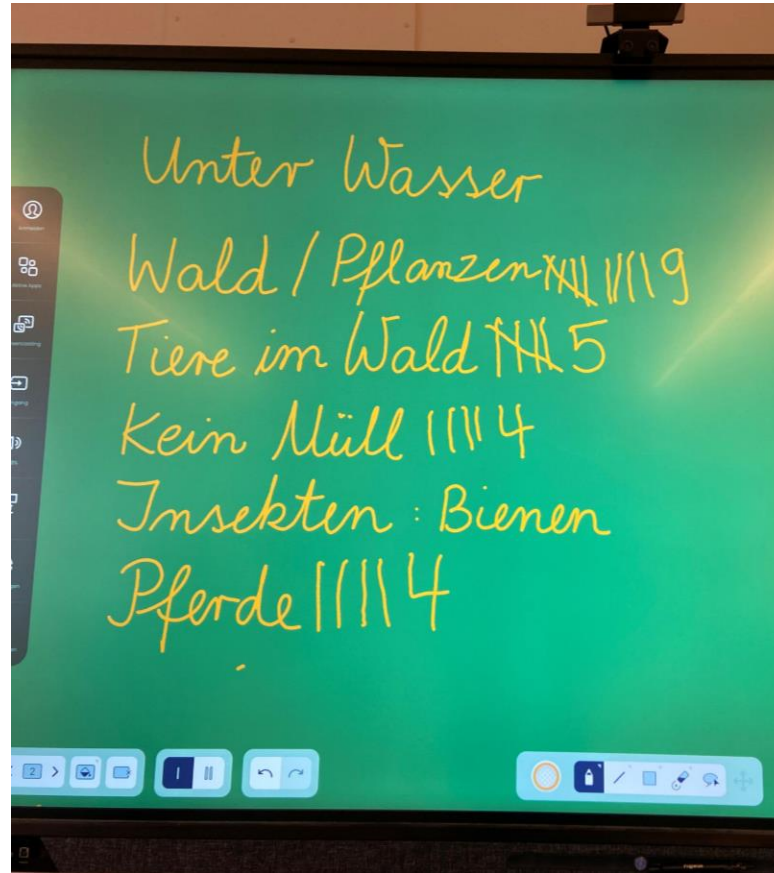 Unter Wasser
Wald / Pflanzen |||| |||| 9
Tiere im Wald |||| 5
Kein Müll |||| 4
Insekten : Bienen
Pferde |||| 4
2